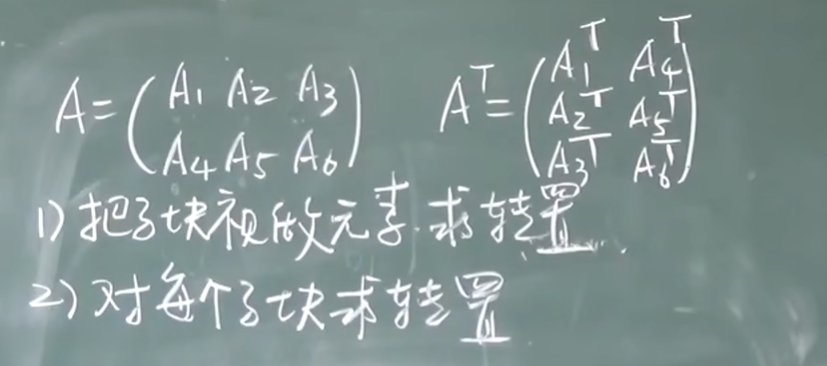 A=(A₁ A₂ A₃ Aᵀ=(A₁ᵀ A₄ᵀ
A₄ A₅ A₆) A₂ᵀ A₅ᵀ
A₃ᵀ A₆ᵀ)
1) 把子块视做元素.求转置
2) 对每个子块求转置